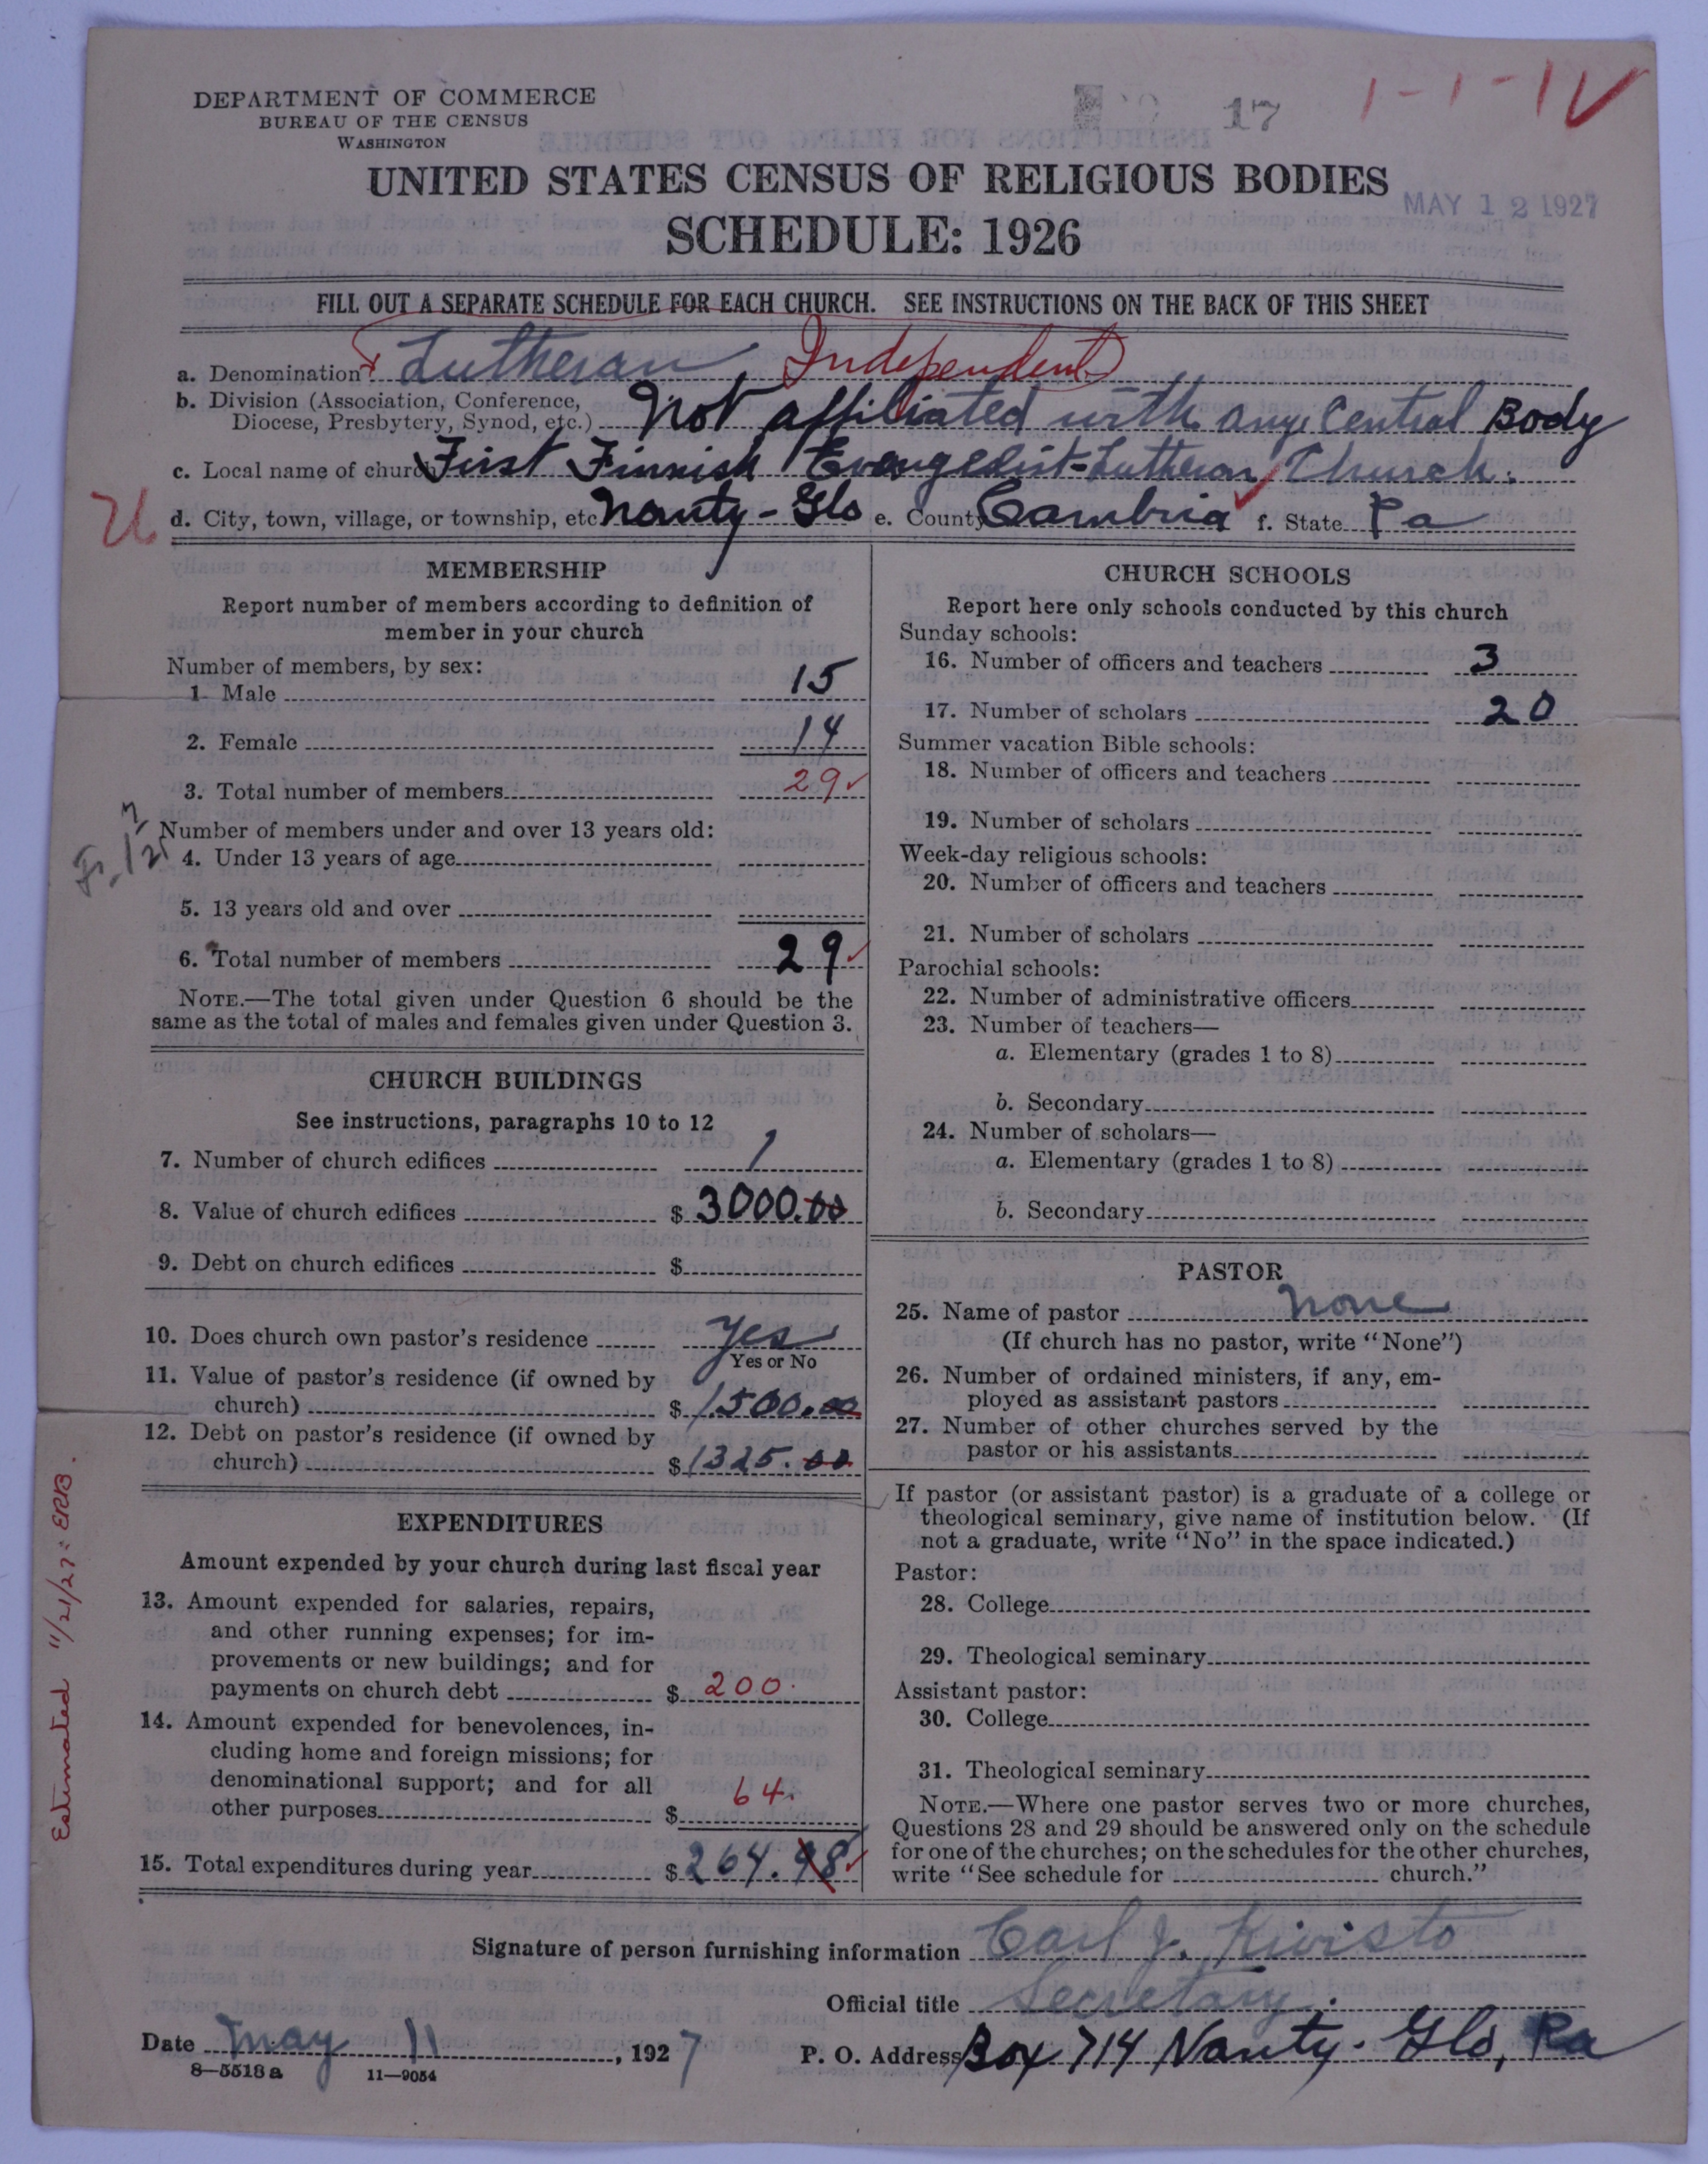 DEPARTMENT OF COMMERCE
BUREAU OF THE CENSUS
WASHINGTON
17
1-1-1V
UNITED STATES CENSUS OF RELIGIOUS BODIES
MAY 12 1927
SCHEDULE: 1926
FILL OUT A SEPARATE SCHEDULE FOR EACH CHURCH. SEE INSTRUCTIONS ON THE BACK OF THIS SHEET
a. Denomination Lutheran Independent
b. Division (Association, Conference, Diocese, Presbytery, Synod, etc.) Not affiliated with any Central Body
c. Local name of church First Finnish Evangelist-Lutheran Church.
d. City, town, village, or township, etc. Nanty-Glo e. County Cambria f. State Pa
MEMBERSHIP
Report number of members according to definition of
member in your church
Number of members, by sex:
1. Male 15
2. Female 14
3. Total number of members 29
Number of members under and over 13 years old:
4. Under 13 years of age
5. 13 years old and over
6. Total number of members 29
NOTE.—The total given under Question 6 should be the
same as the total of males and females given under Question 3.
CHURCH BUILDINGS
See instructions, paragraphs 10 to 12
7. Number of church edifices 1
8. Value of church edifices $ 3000.00
9. Debt on church edifices $
10. Does church own pastor's residence Yes
Yes or No
11. Value of pastor's residence (if owned by
church) $ 1500.00
12. Debt on pastor's residence (if owned by
church) $ 1325.00
EXPENDITURES
Amount expended by your church during last fiscal year
13. Amount expended for salaries, repairs,
and other running expenses; for im-
provements or new buildings; and for
payments on church debt $ 200.
14. Amount expended for benevolences, in-
cluding home and foreign missions; for
denominational support; and for all
other purposes $ 64.
15. Total expenditures during year $ 264.98
Estimated 11/21/27: ERB.
CHURCH SCHOOLS
Report here only schools conducted by this church
Sunday schools:
16. Number of officers and teachers 3
17. Number of scholars 20
Summer vacation Bible schools:
18. Number of officers and teachers
19. Number of scholars
Week-day religious schools:
20. Number of officers and teachers
21. Number of scholars
Parochial schools:
22. Number of administrative officers
23. Number of teachers—
a. Elementary (grades 1 to 8)
b. Secondary
24. Number of scholars—
a. Elementary (grades 1 to 8)
b. Secondary
PASTOR
25. Name of pastor None
(If church has no pastor, write "None")
26. Number of ordained ministers, if any, em-
ployed as assistant pastors
27. Number of other churches served by the
pastor or his assistants
If pastor (or assistant pastor) is a graduate of a college or
theological seminary, give name of institution below. (If
not a graduate, write "No" in the space indicated.)
Pastor:
28. College
29. Theological seminary
Assistant pastor:
30. College
31. Theological seminary
NOTE.—Where one pastor serves two or more churches,
Questions 28 and 29 should be answered only on the schedule
for one of the churches; on the schedules for the other churches,
write "See schedule for church."
Signature of person furnishing information Carl J. Kivisto
Official title Secretary.
Date May 11, 1927 P. O. Address Box 714 Nanty-Glo, Pa
8—5518a 11—9054